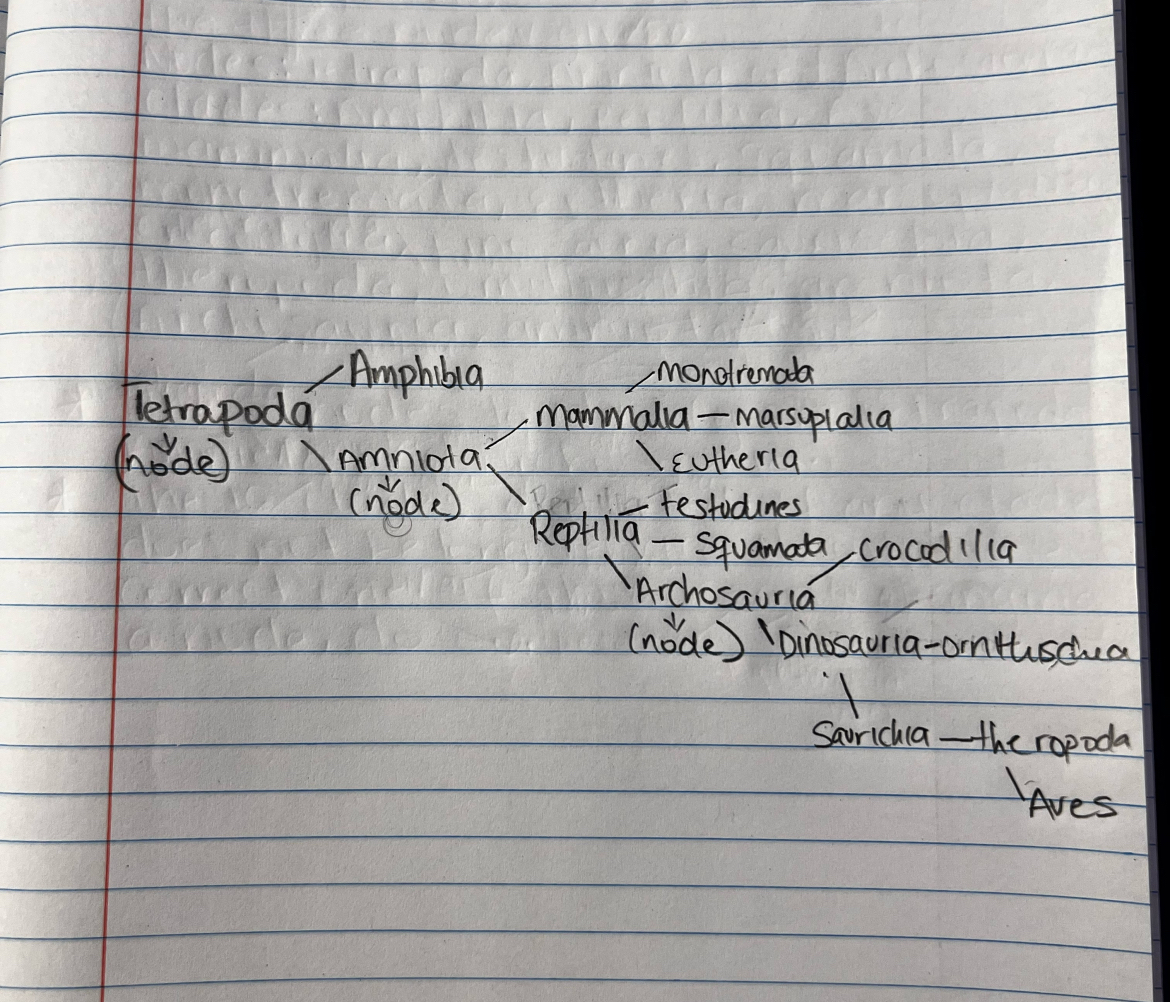 Amphibia monotremata
Tetrapoda mammalia — marsupialia
(node) Amniota Eutheria
(node) testudines
Reptilia — Squamata crocodilia
Archosauria
(node) Dinosauria - ornithischia
Saurichia — theropoda
Aves